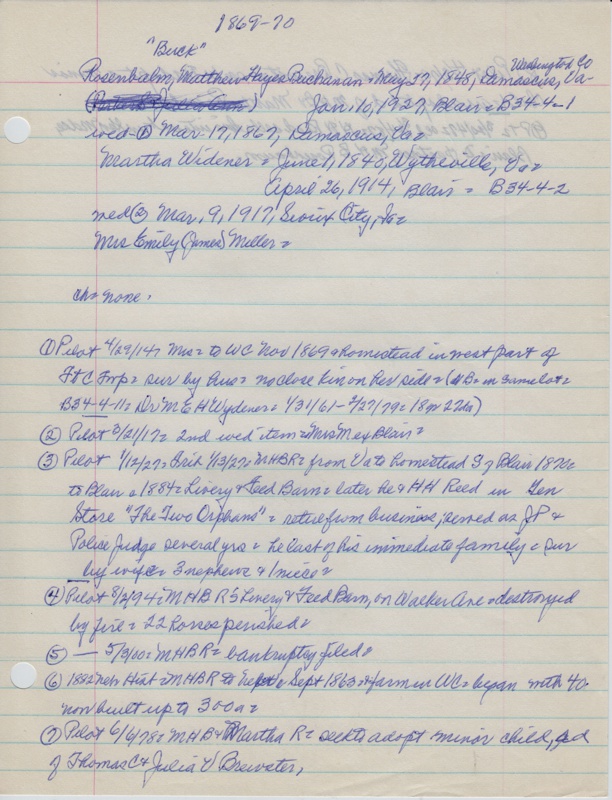 1869-70
"Buck"
Washington Co
Rosenbalm, Matthew Hayes Buchanan = May 27, 1848, Damascus, Va =
Jan. 10, 1927, Blair = B34-4-1
wed ① Mar 17, 1867, Damascus, Va =
Martha Widener = June 1, 1840, Wytheville, Va =
April 26, 1914, Blair = B34-4-2
wed ② Mar, 9, 1917, Sioux City, Ia =
Mrs Emily (James) Miller =
ch = none.
① Pilot 4/29/14 = Mrs = to WC Nov 1869 = homestead in west part of
Ft C Twp = sur by hus = no close kin on her side = ( in same lot =
B34-4-11 = Dr M E H Wydener = 1/31/61 - 2/27/79 = 18 yr 27 da)
② Pilot 3/21/17 = 2nd wed item = Mrs Blair =
③ Pilot 1/12/27 = 1/13/27 = MHBR = from Va to homestead S of Blair 1870 =
to Blair = 1884 = Livery & Feed Barn = later he & HH Reed in Gen
Store "The Two Orphans" = retire from business, served as JP &
Police Judge several yrs = he last of his immediate family = sur
by wife = 3 nephews & 1 niece =
④ Pilot 8/2/94 = MHBR'S Livery & Feed Barn, on Walker Ave = destroyed
by fire = 22 horses perished =
⑤ — 5/3/00 = MHBR = bankruptcy filed =
⑥ 1882 Neb Hist = MHBR to Sept 1863 = farm in WC = began with 40 =
now built up to 300 a =
⑦ Pilot 6/6/78 = MHB & Martha R = seek to adopt minor child,
of Thomas C & Julia V Brewster,